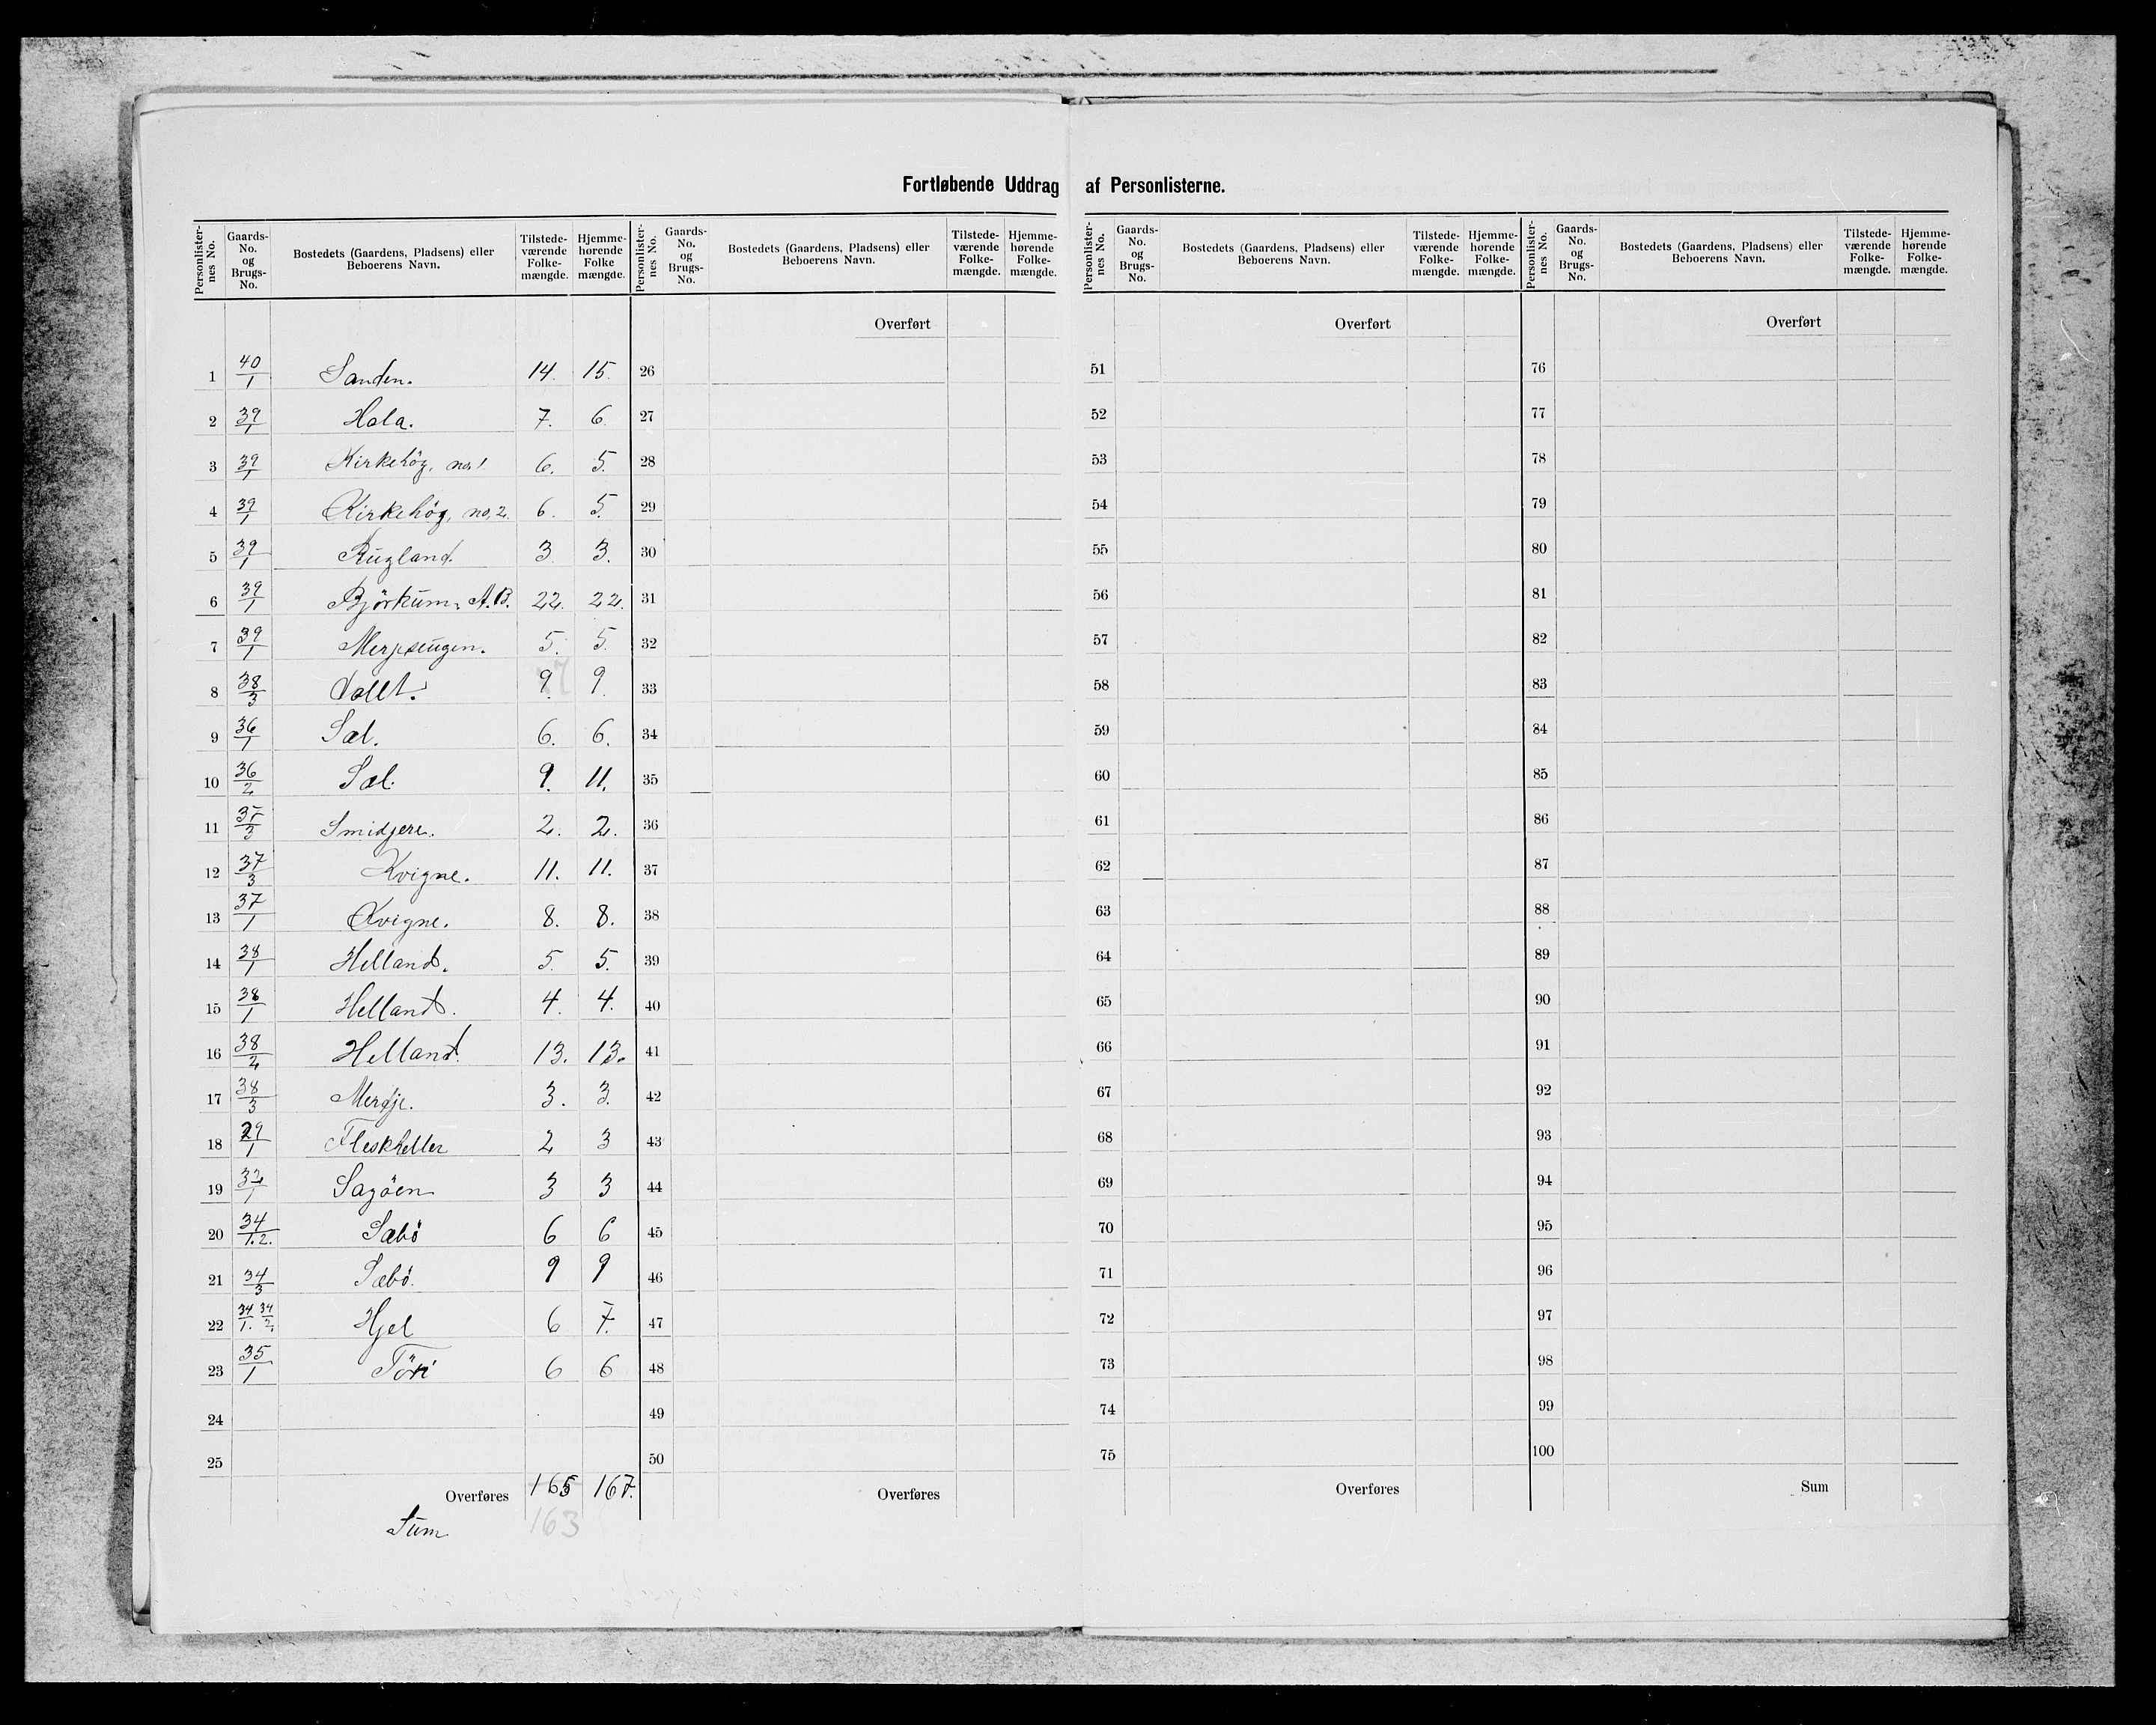 Fortløbende Uddrag af Personlisterne.
Personlisternes No. Gaards-No. og Brugs-No. Bostedets (Gaardens, Pladsens) eller Beboerens Navn. Tilstedeværende Folkemængde. Hjemmehørende Folkemængde.
1 40/1 Sanden. 14. 15.
2 39/1 Hola. 7. 6.
3 39/1 Kirkehög, no 1 6. 5.
4 39/1 Kirkehög, no, 2. 6. 5.
5 39/1 Rugland. 3. 3.
6 39/1 Björkum, A.B. 22. 22.
7 39/1 5. 5.
8 38/3 9. 9.
9 36/1 Sæl. 6. 6.
10 36/2 Sæl. 9. 11.
11 37/3 Smidjere. 2. 2.
12 37/3 Kvigne. 11. 11.
13 37/1 Kvigne. 8. 8.
14 38/1 Helland. 5. 5.
15 38/1 Helland. 4. 4.
16 38/2 Helland. 13. 13.
17 38/3 Mergje. 3. 3.
18 29/1 Fleskheller 2 3
19 32/1 Sagöen 3 3
20 34/1.2. Sæbö 6 6
21 34/3 Sæbö. 9 9
22 34/1. 34/2. Hjel 6 7.
23 35/1 6 6
24
25
Overføres 165 167.
Sum 163
Personlisternes No. Gaards-No. og Brugs-No. Bostedets (Gaardens, Pladsens) eller Beboerens Navn. Tilstedeværende Folkemængde. Hjemmehørende Folkemængde.
Overført
26
27
28
29
30
31
32
33
34
35
36
37
38
39
40
41
42
43
44
45
46
47
48
49
50
Overføres
Personlisternes No. Gaards-No. og Brugs-No. Bostedets (Gaardens, Pladsens) eller Beboerens Navn. Tilstedeværende Folkemængde. Hjemmehørende Folkemængde.
Overført
51
52
53
54
55
56
57
58
59
60
61
62
63
64
65
66
67
68
69
70
71
72
73
74
75
Overføres
Personlisternes No. Gaards-No. og Brugs-No. Bostedets (Gaardens, Pladsens) eller Beboerens Navn. Tilstedeværende Folkemængde. Hjemmehørende Folkemængde.
Overført
76
77
78
79
80
81
82
83
84
85
86
87
88
89
90
91
92
93
94
95
96
97
98
99
100
Sum